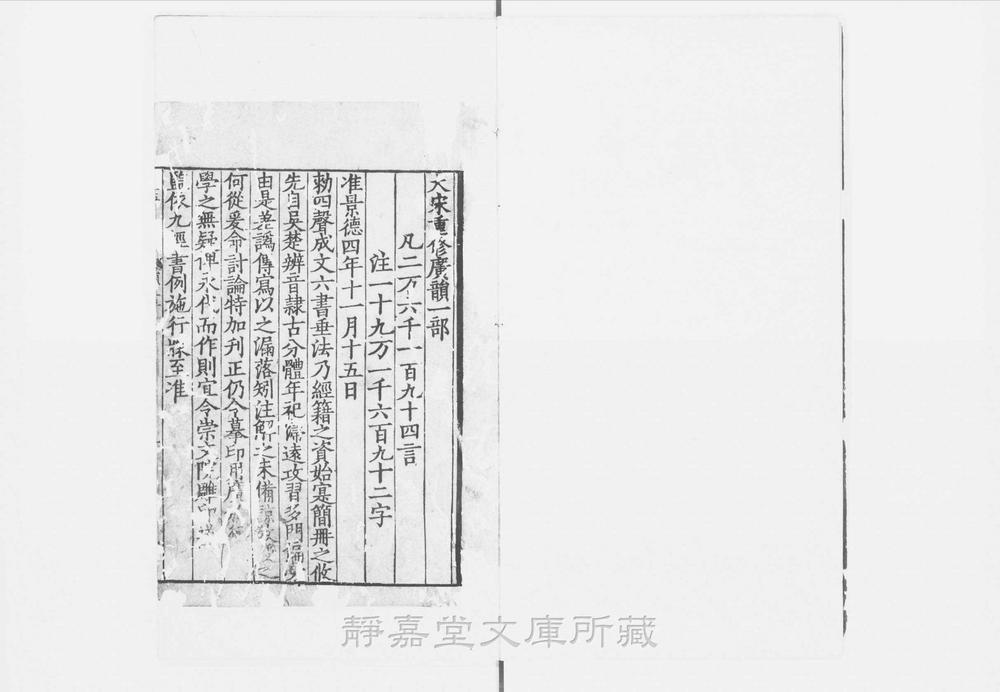 大宋重修廣韻一部
凡二万六千一百九十四言
注一十九万一千六百九十二字
准景德四年十一月十五日
勑四聲成文六書垂法乃經籍之資始寔簡冊之攸
先自吳楚辨音隷古分體年祀寖遠攻習多門偏旁
由是差譌傳寫以之漏落矧注解之未備諒教授之
何從爰命討論特加刊正仍令摹印用廣
學之無疑俾永代而作則宜令崇文院雕印送
監依九經書例施行牒至准
靜嘉堂文庫所藏